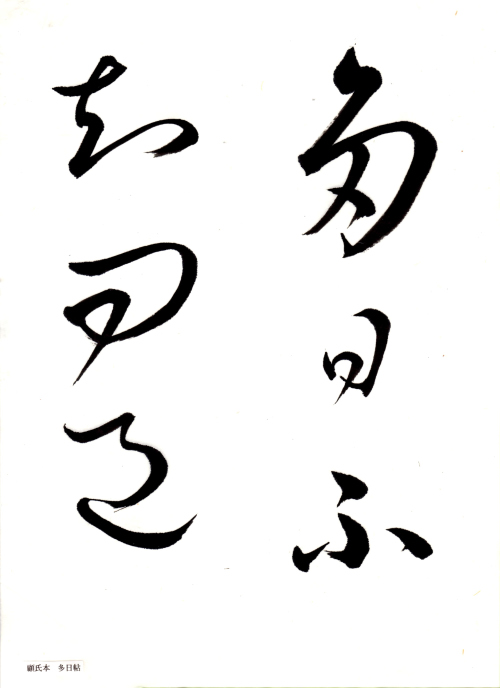 多日不
知問邑
顧氏本 多日帖